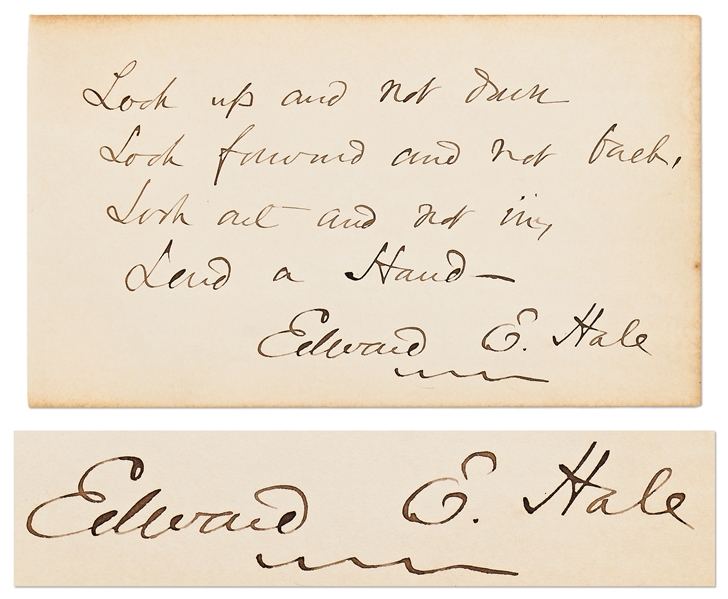 Look up and not down
Look forward and not back,
Look out and not in,
Lend a Hand —
Edward E. Hale
Edward E. Hale